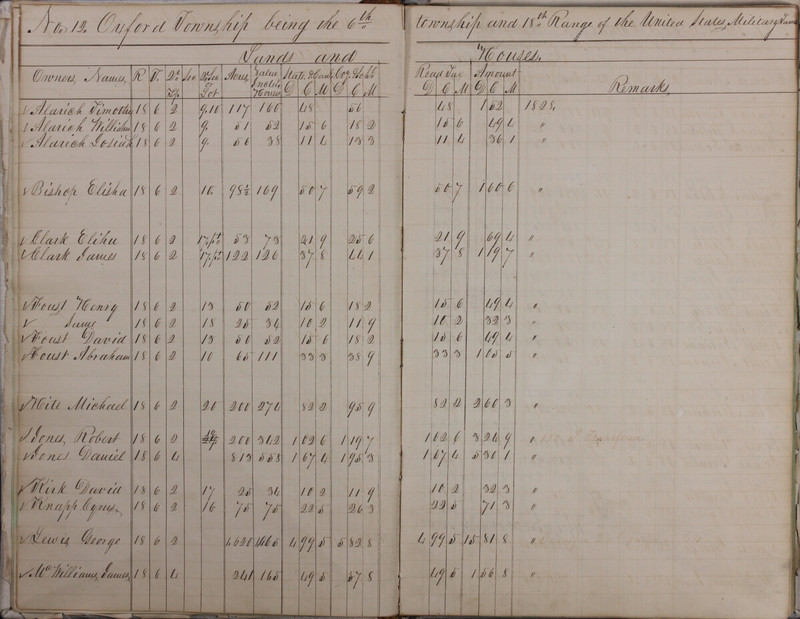 No. 12, Oxford Township being the 6th township and 18th Range of the United States Military
Lands and Houses.
Owners, Names, R T. Qr Tp Sec Lot Acres Value including Houses State D C M Co. & School D C M Road Tax D C M Amount D C M Remarks
Timothy 18 6 2 9.10 117 160 48 56 48 1 52 1828,
18 6 2 9. 51 52 15 6 18 2 15 6 49 4 "
18 6 2 9. 56 38 11 4 13 3 11 4 36 1 "
Bishop Elisha 18 6 2 10. 98½ 169 50 7 59 2 50 7 1 60 6 "
Clark Elihu 18 6 2 17,pt 53 73 21 9 25 6 21 9 69 4 "
Clark James 18 6 2 17,pt 122 126 37 8 44 1 37 8 1 19 7 "
Foust Henry 18 6 2 13 50 52 15 6 18 2 15 6 49 4 "
Same 18 6 2 18 25 34 10 2 11 9 10 2 32 3 "
Foust David 18 6 2 13 50 52 15 6 18 2 15 6 49 4 "
Foust Abraham 18 6 2 10 65 111 33 3 38 9 33 3 1 05 5 "
Hite Michael 18 6 2 20 200 274 82 2 95 9 82 2 2 60 3 "
Jones, Robert 18 6 2 200 342 1 02 6 1 19 7 1 02 6 3 24 9 "
Jones Daniel 18 6 4 813 558 1 67 4 1 95 3 1 67 4 5 30 1 "
Kirk David 18 6 2 17 25 34 10 2 11 9 10 2 32 3 "
Knapp Cyrus, 18 6 2 16 75 75 22 5 26 3 22 5 71 3 "
Lewis George 18 6 2 4020 1665 4 99 5 5 82 8 4 99 5 15 81 8 "
McWilliams, James, 18 6 4 241 165 49 5 57 8 49 5 1 56 8 "